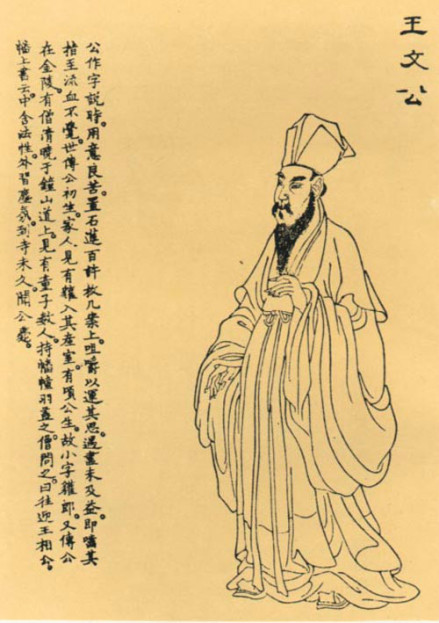 王文公
公作字說時。用意良苦。置石蓮百許枚几案上。咀嚼以運其思。遇盡未及益。即嚙其
指至流血不覺。世傳公初生。家人見有獾入其產室。有頃公生。故小字獾郎。又傳公
在金陵。有僧清曉于鐘山道上。見有童子數人。持幡幢羽蓋之。僧問之。曰往迎王相公。
幡上書云中含法性。外習塵氛。到寺未久聞公薨。